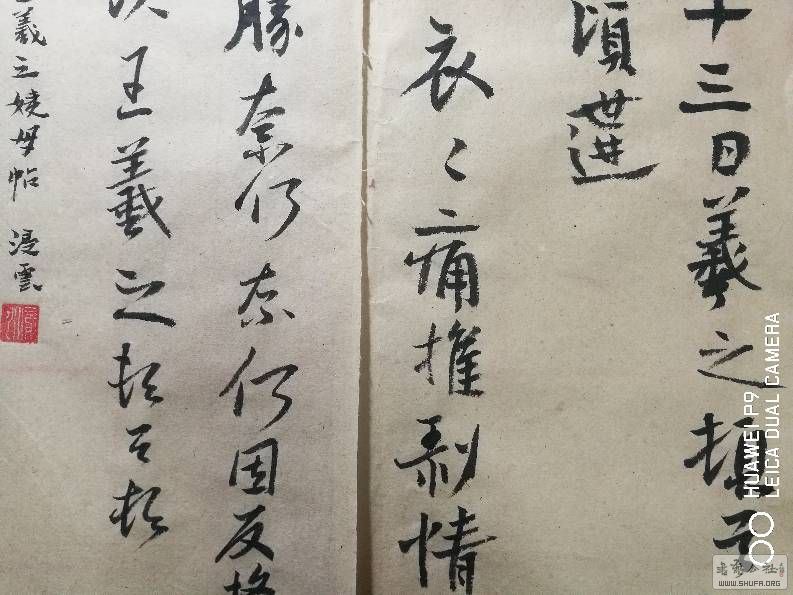 十三日羲之頓首
頃遘
哀〻痛摧剝情
勝奈何奈何因反
次王羲之頓首頓
羲之姨母帖 浸雲
HUAWEI P9
LEICA DUAL CAMERA
WWW.SHUFA.ORG